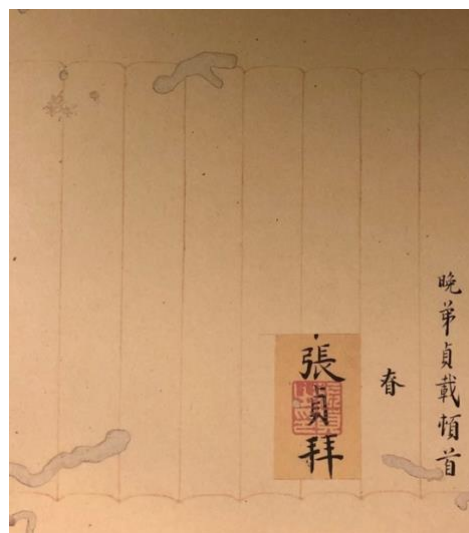 晚弟貞載頓首
春
張貞拜